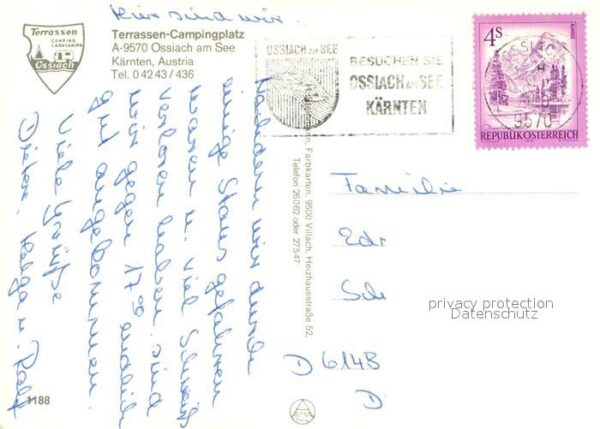 Hier sind wir.
Terrassen
CAMPING
CARAVANING
Ossiach
Terrassen-Campingplatz
A-9570 Ossiach am See
Kärnten, Austria
Tel. 0 42 43 / 436
OSSIACH AM SEE
BESUCHEN SIE
OSSIACH AM SEE
KÄRNTEN
4S
REPUBLIK ÖSTERREICH
OSSIACH
9570
Nachdem wir durch
einige Staus gefahren
waren u. viel Schweiß
verloren haben sind
wir gegen 17 00 endlich
gut angekommen.
Viele Grüße
Dieter, Helga u. Ralf
Farbkarten, 9500 Villach, Heizhausstraße 52,
Telefon 26062 oder 27547
Familie
Edr
Sch
privacy protection
Datenschutz
D 6148
D
1188